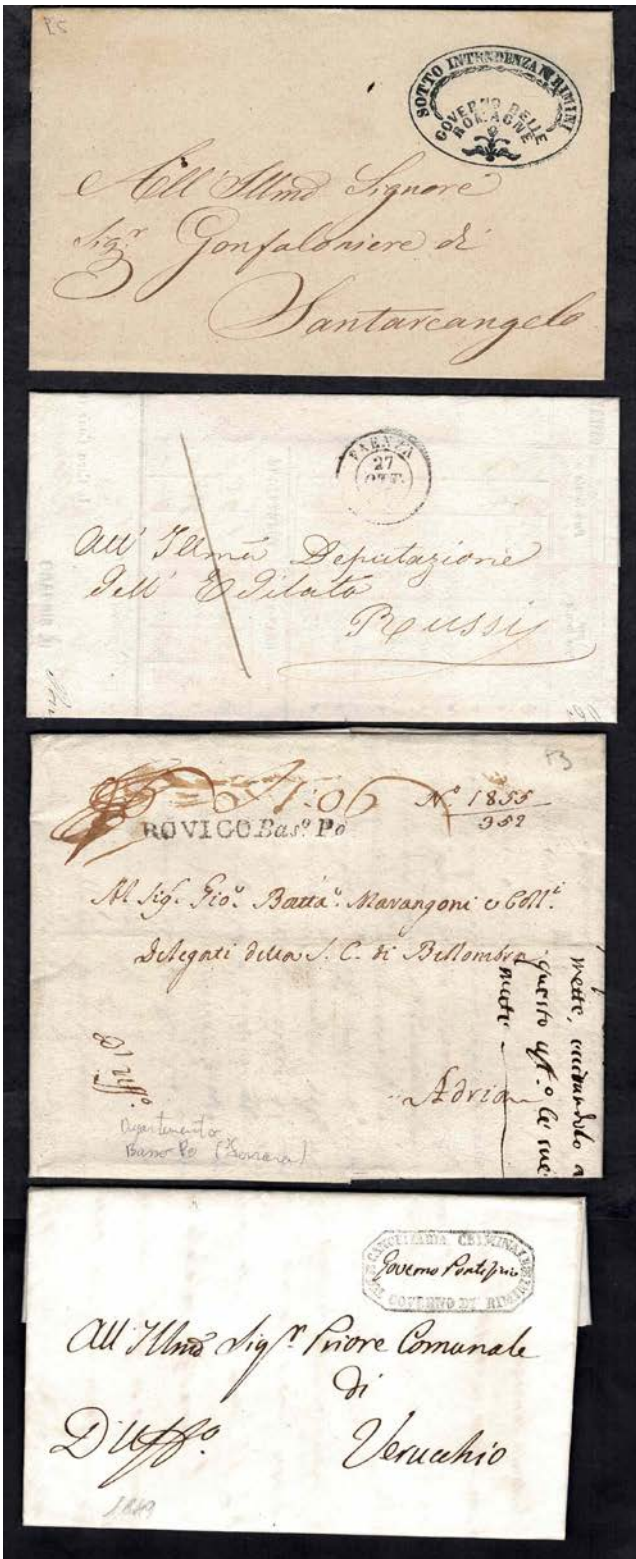 P.5
SOTTO INTENDENZA DI RIMINI
GOVERNO DELLE
ROMAGNE
All' Illmo Signore
Sigr Gonfaloniere di
Santarcangelo
FAENZA
27
OTT.
All' Illma Deputazione
dell' Edilato
Russi
P3
1:06
No. 1855
952
ROVIGO Basº. Pò
Al Sig. Gio. Batta. Marangoni e Coll.i
Delegati della S. C. di Bellombra
Adria
D' uffº.
mette,
questo uff.o le sue
Dipartimento
Basso Po
CANCELLERIA CRIMINALE
Governo Pontificio
GOVERNO DI RIMINI
All' Illmo Sigr Priore Comunale
di
D'Uffº. Verucchio
1849